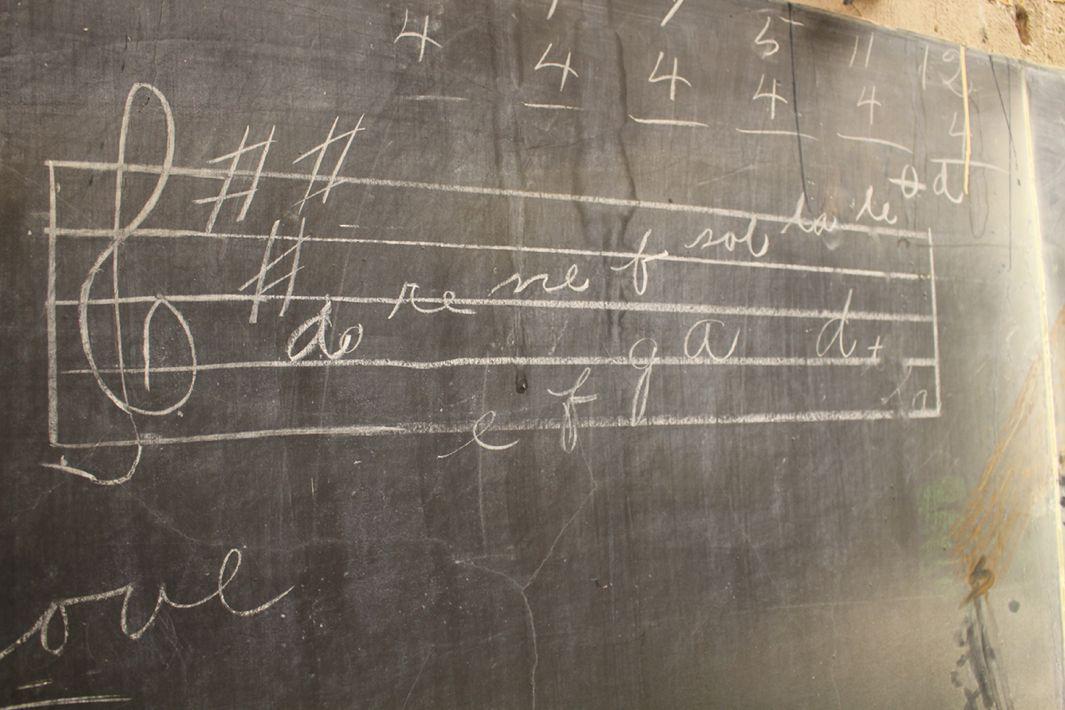 4 4 4 5 11 12
4 4 4
# #
#
do re me f sol la te d
e f g a d
ove